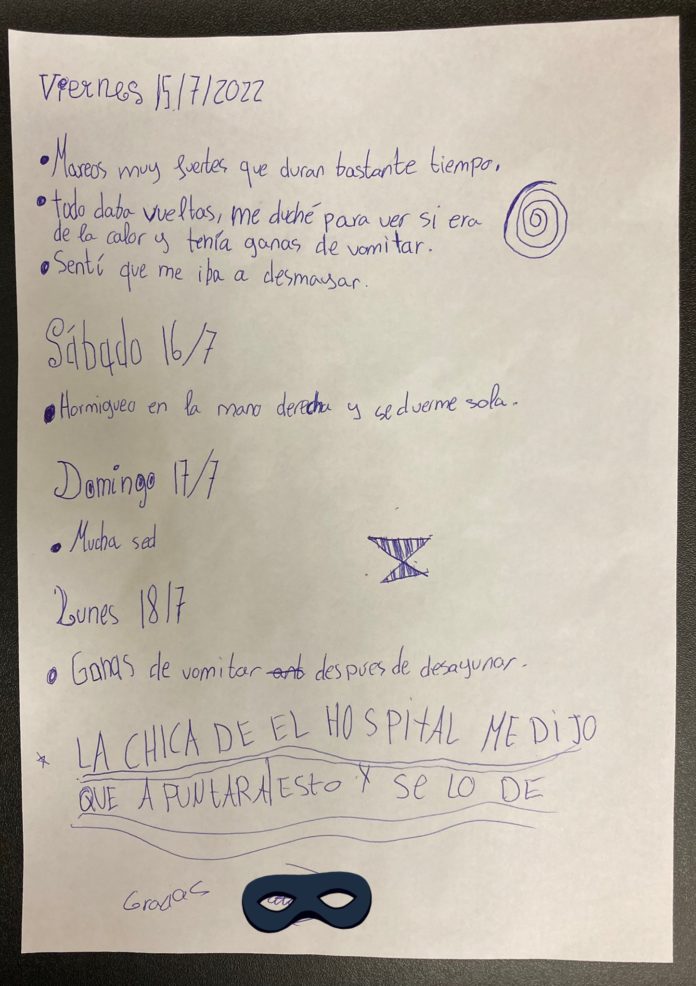 Viernes 15/7/2022
• Mareos muy fuertes que duran bastante tiempo.
• todo daba vueltas, me duché para ver si era
de la calor y tenía ganas de vomitar.
• Sentí que me iba a desmayar.
Sábado 16/7
• Hormigueo en la mano derecha y se duerme sola.
Domingo 17/7
• Mucha sed
Lunes 18/7
• Ganas de vomitar despues de desayunar.
* LA CHICA DE EL HOSPITAL ME DIJO
QUE APUNTARA ESTO Y SE LO DE
Gracias